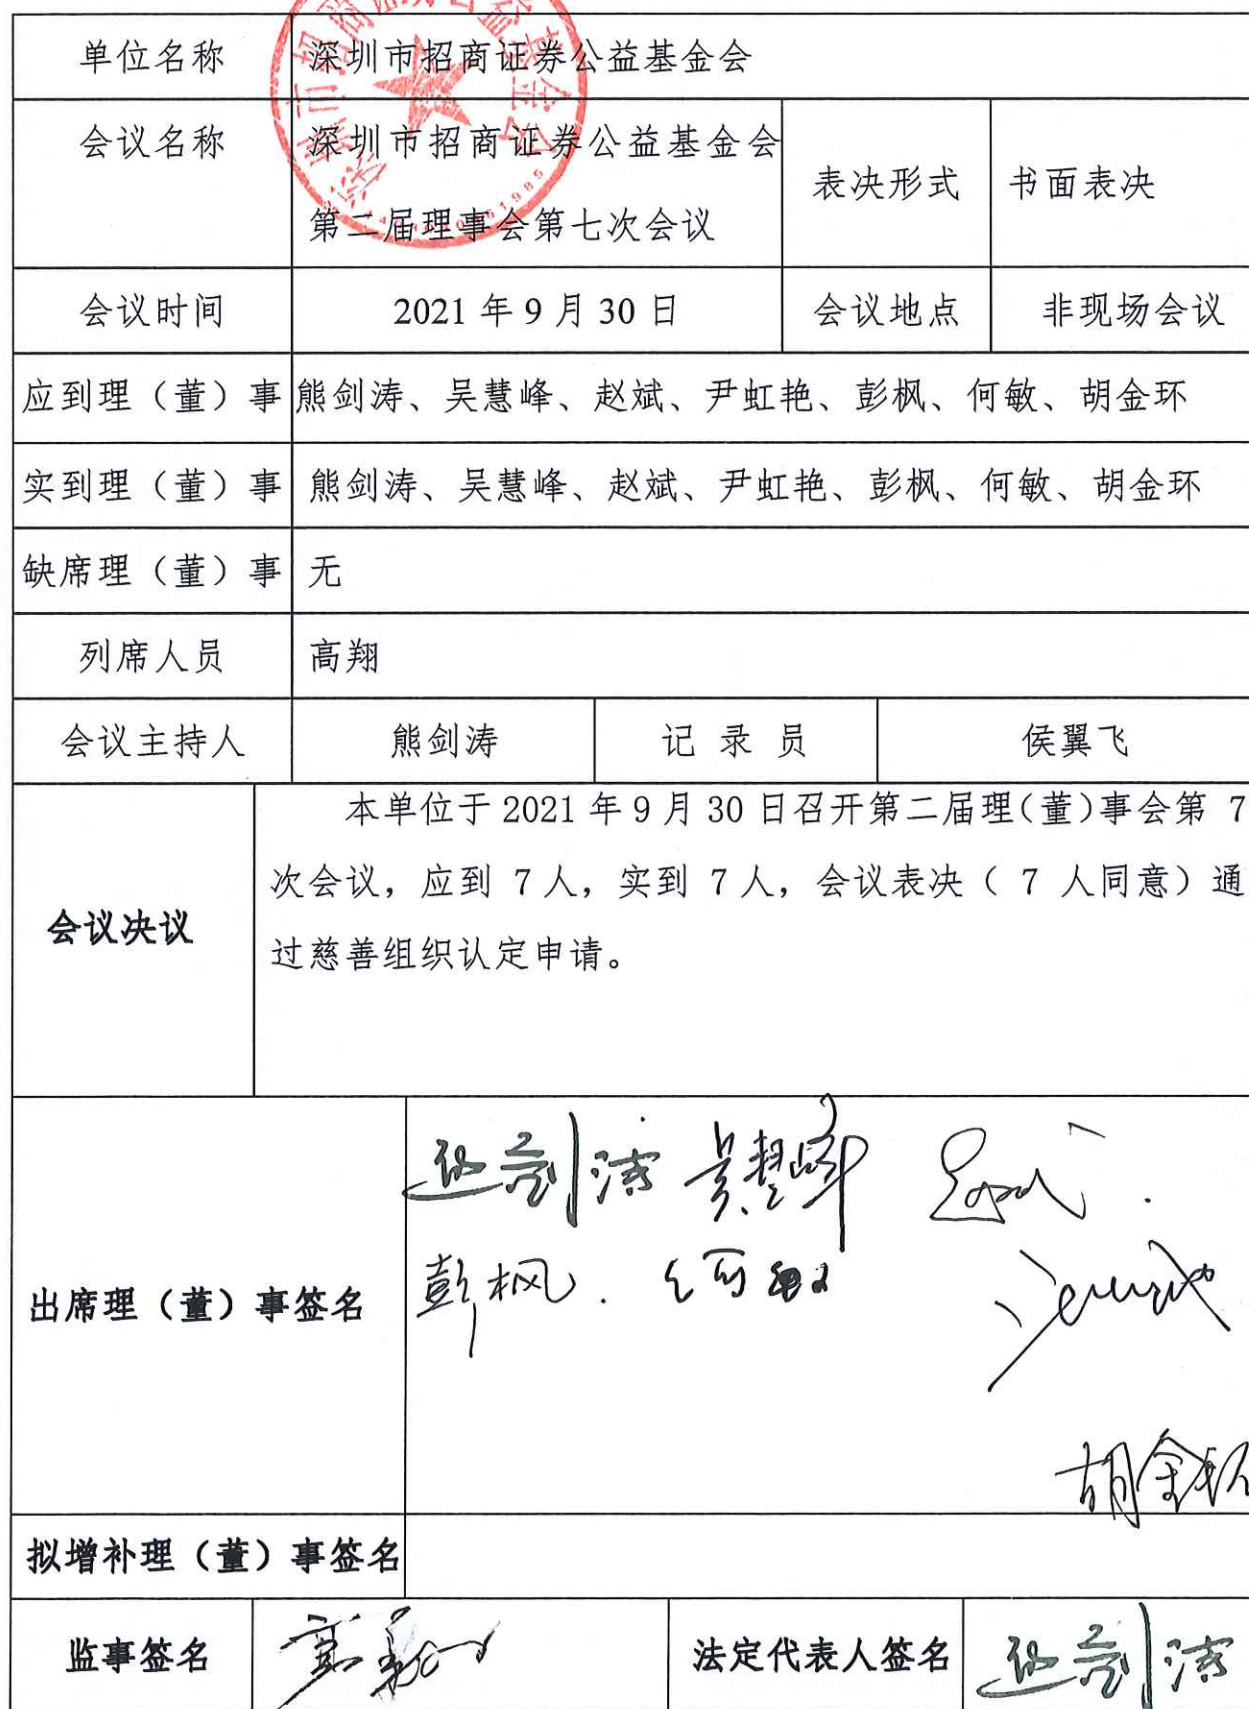 单位名称 深圳市招商证券公益基金会
会议名称 深圳市招商证券公益基金会
第二届理事会第七次会议
表决形式 书面表决
会议时间 2021年9月30日 会议地点 非现场会议
应到理（董）事 熊剑涛、吴慧峰、赵斌、尹虹艳、彭枫、何敏、胡金环
实到理（董）事 熊剑涛、吴慧峰、赵斌、尹虹艳、彭枫、何敏、胡金环
缺席理（董）事 无
列席人员 高翔
会议主持人 熊剑涛 记录员 侯翼飞
会议决议
本单位于2021年9月30日召开第二届理(董)事会第 7
次会议，应到 7人，实到 7人，会议表决（ 7 人同意）通
过慈善组织认定申请。
出席理（董）事签名
熊剑涛 吴慧峰
彭枫 何敏
胡金环
拟增补理（董）事签名
监事签名 高翔 法定代表人签名 熊剑涛